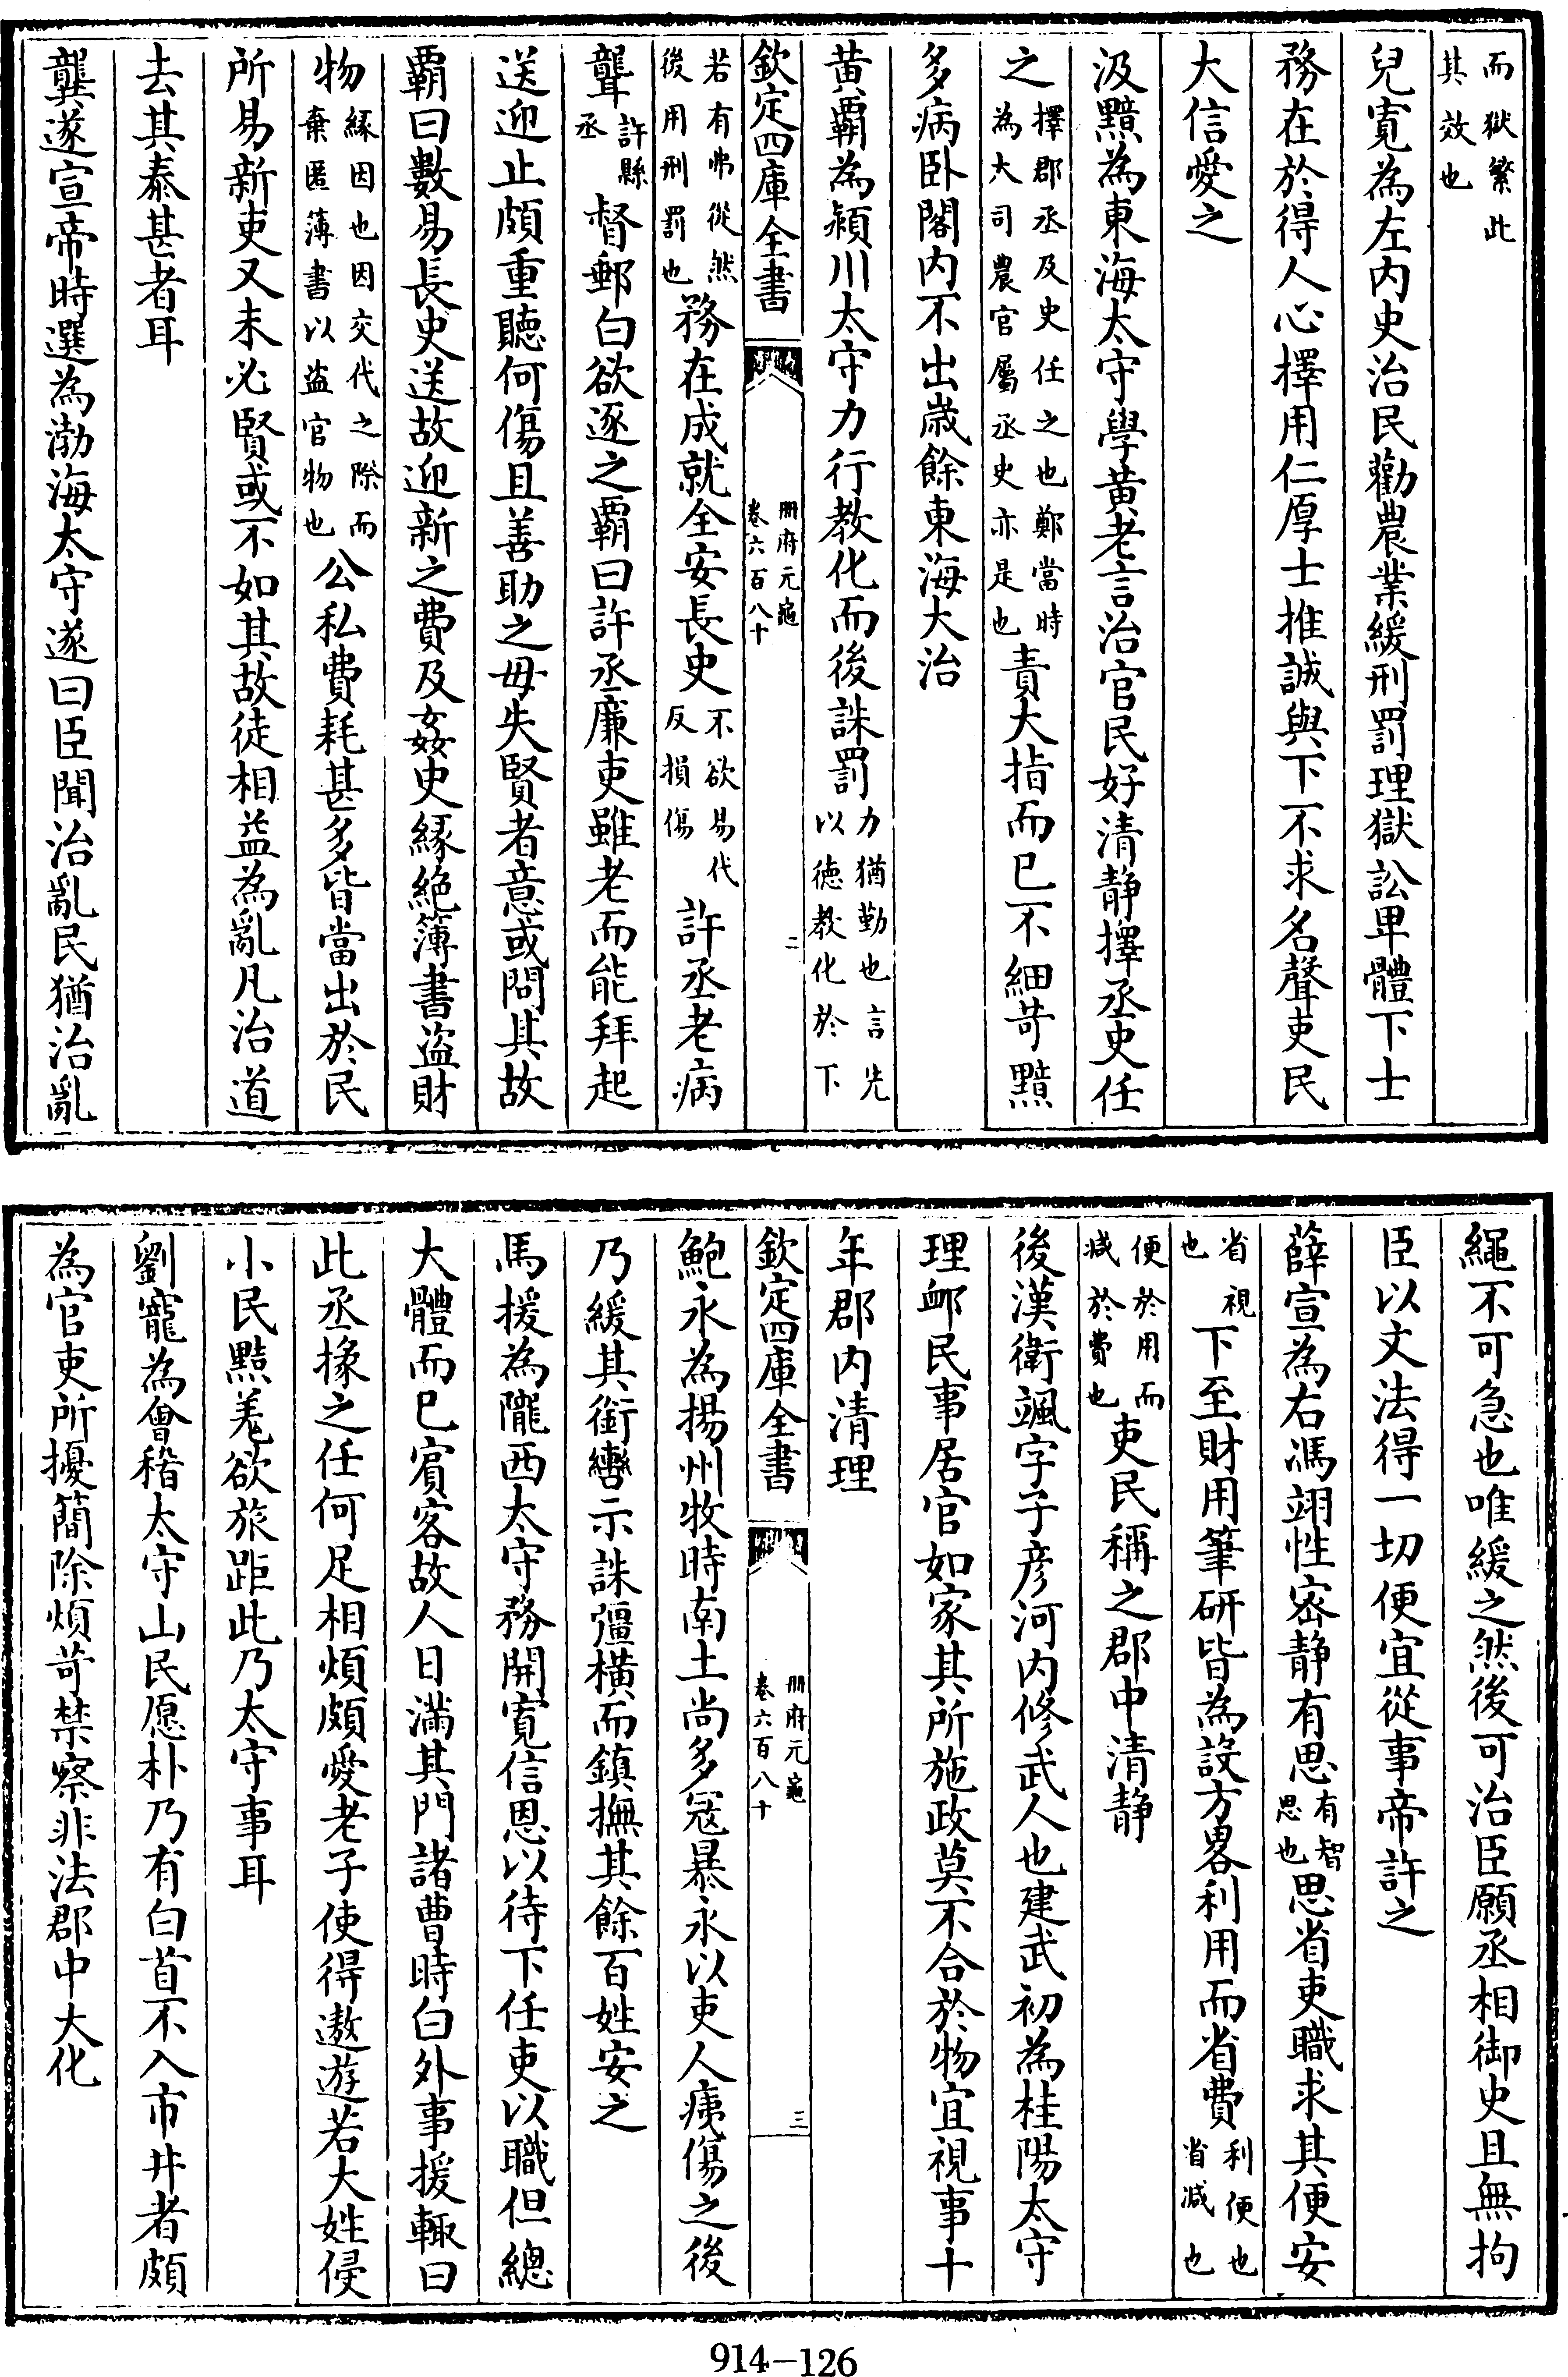 而獄繁此其效也
兒寛為左内史治民勸農業緩刑罰理獄訟卑體下士
務在於得人心擇用仁厚士推誠與下不求名聲吏民
大信愛之
汲黯為東海太守學黄老言治官民好清静擇丞史任
之擇郡丞及史任之也鄭當時為大司農官屬丞史亦是也責大指而已不細苛黯
多病卧閣内不出嵗餘東海大治
黄霸為潁川太守力行教化而後誅罰力猶勤也言先以徳教化於下
欽定四庫全書 册府元龜卷六百八十 二
若有弗從然後用刑罰也務在成就全安長史不欲易代反損傷許丞老病
聾許縣丞督郵白欲逐之霸曰許丞廉吏雖老而能拜起
送迎止頗重聽何傷且善助之毋失賢者意或問其故
霸曰數易長史送故迎新之費及姦史縁絶簿書盗財
物縁因也因交代之際而棄匿薄書以盗官物也公私費耗甚多皆當出於民
所易新吏又未必賢或不如其故徒相益為亂凡治道
去其泰甚者耳
龔遂宣帝時選為渤海太守遂曰臣聞治亂民猶治亂
繩不可急也唯緩之然後可治臣願丞相御史且無拘
臣以文法得一切便宜從事帝許之
薛宣為右馮翊性宻静有思有智思也思省吏職求其便安
省視也下至財用筆研皆為設方畧利用而省費利便也省減也
便於用而減於費也吏民稱之郡中清静
後漢衛颯字子彦河内修武人也建武初為桂陽太守
理䘏民事居官如家其所施政莫不合於物宜視事十
年郡内清理
欽定四庫全書 册府元龜卷六百八十 三
鮑永為揚州牧時南土尚多冦暴永以吏人痍傷之後
乃緩其銜轡示誅彊横而鎮撫其餘百姓安之
馬援為隴西太守務開寛信恩以待下任吏以職但總
大體而已賓客故人日滿其門諸曹時白外事援輒曰
此丞掾之任何足相煩頗愛老子使得遨遊若大姓侵
小民黠羌欲旅距此乃太守事耳
劉寵為會稽太守山民愿朴乃有白首不入市井者頗
為官吏所擾簡除煩苛禁察非法郡中大化
914-126